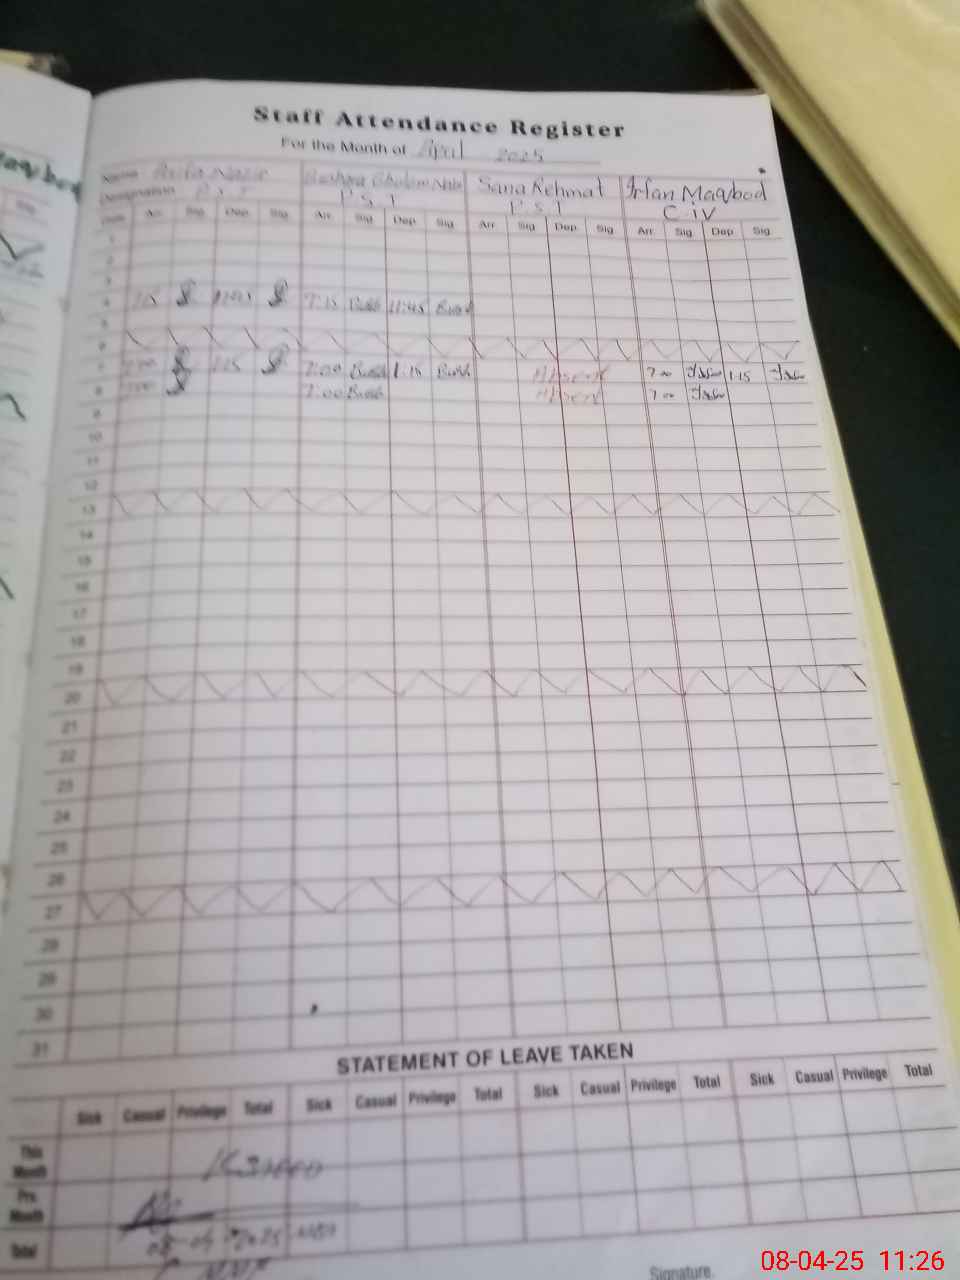 Staff Attendance Register
For the Month of April 2025
Name Arifa Nazir Bushra Ghulam Nabi Sana Rehmat Irfan Maqbod
Designation P.S.T P.S.T P.S.T C-IV
Date Arr. Sig. Dep. Sig. Arr. Sig. Dep. Sig. Arr. Sig. Dep. Sig. Arr. Sig. Dep. Sig.
1
2
3
4 7.15 11:45 Bush
5
6
7 7:00 1:15 7:00 Bush 1:15 Bush Absent 7 00 Irfan 1-15 Irfan
8 7:00 7:00 Bush Absent 7 00 Irfan
9
10
11
12
13
14
15
16
17
18
19
20
21
22
23
24
25
26
27
28
29
30
31
STATEMENT OF LEAVE TAKEN
Sick Casual Privilege Total Sick Casual Privilege Total Sick Casual Privilege Total Sick Casual Privilege Total
This Month
Prs. Month
Total
08-04-2025
Signature.
08-04-25 11:26